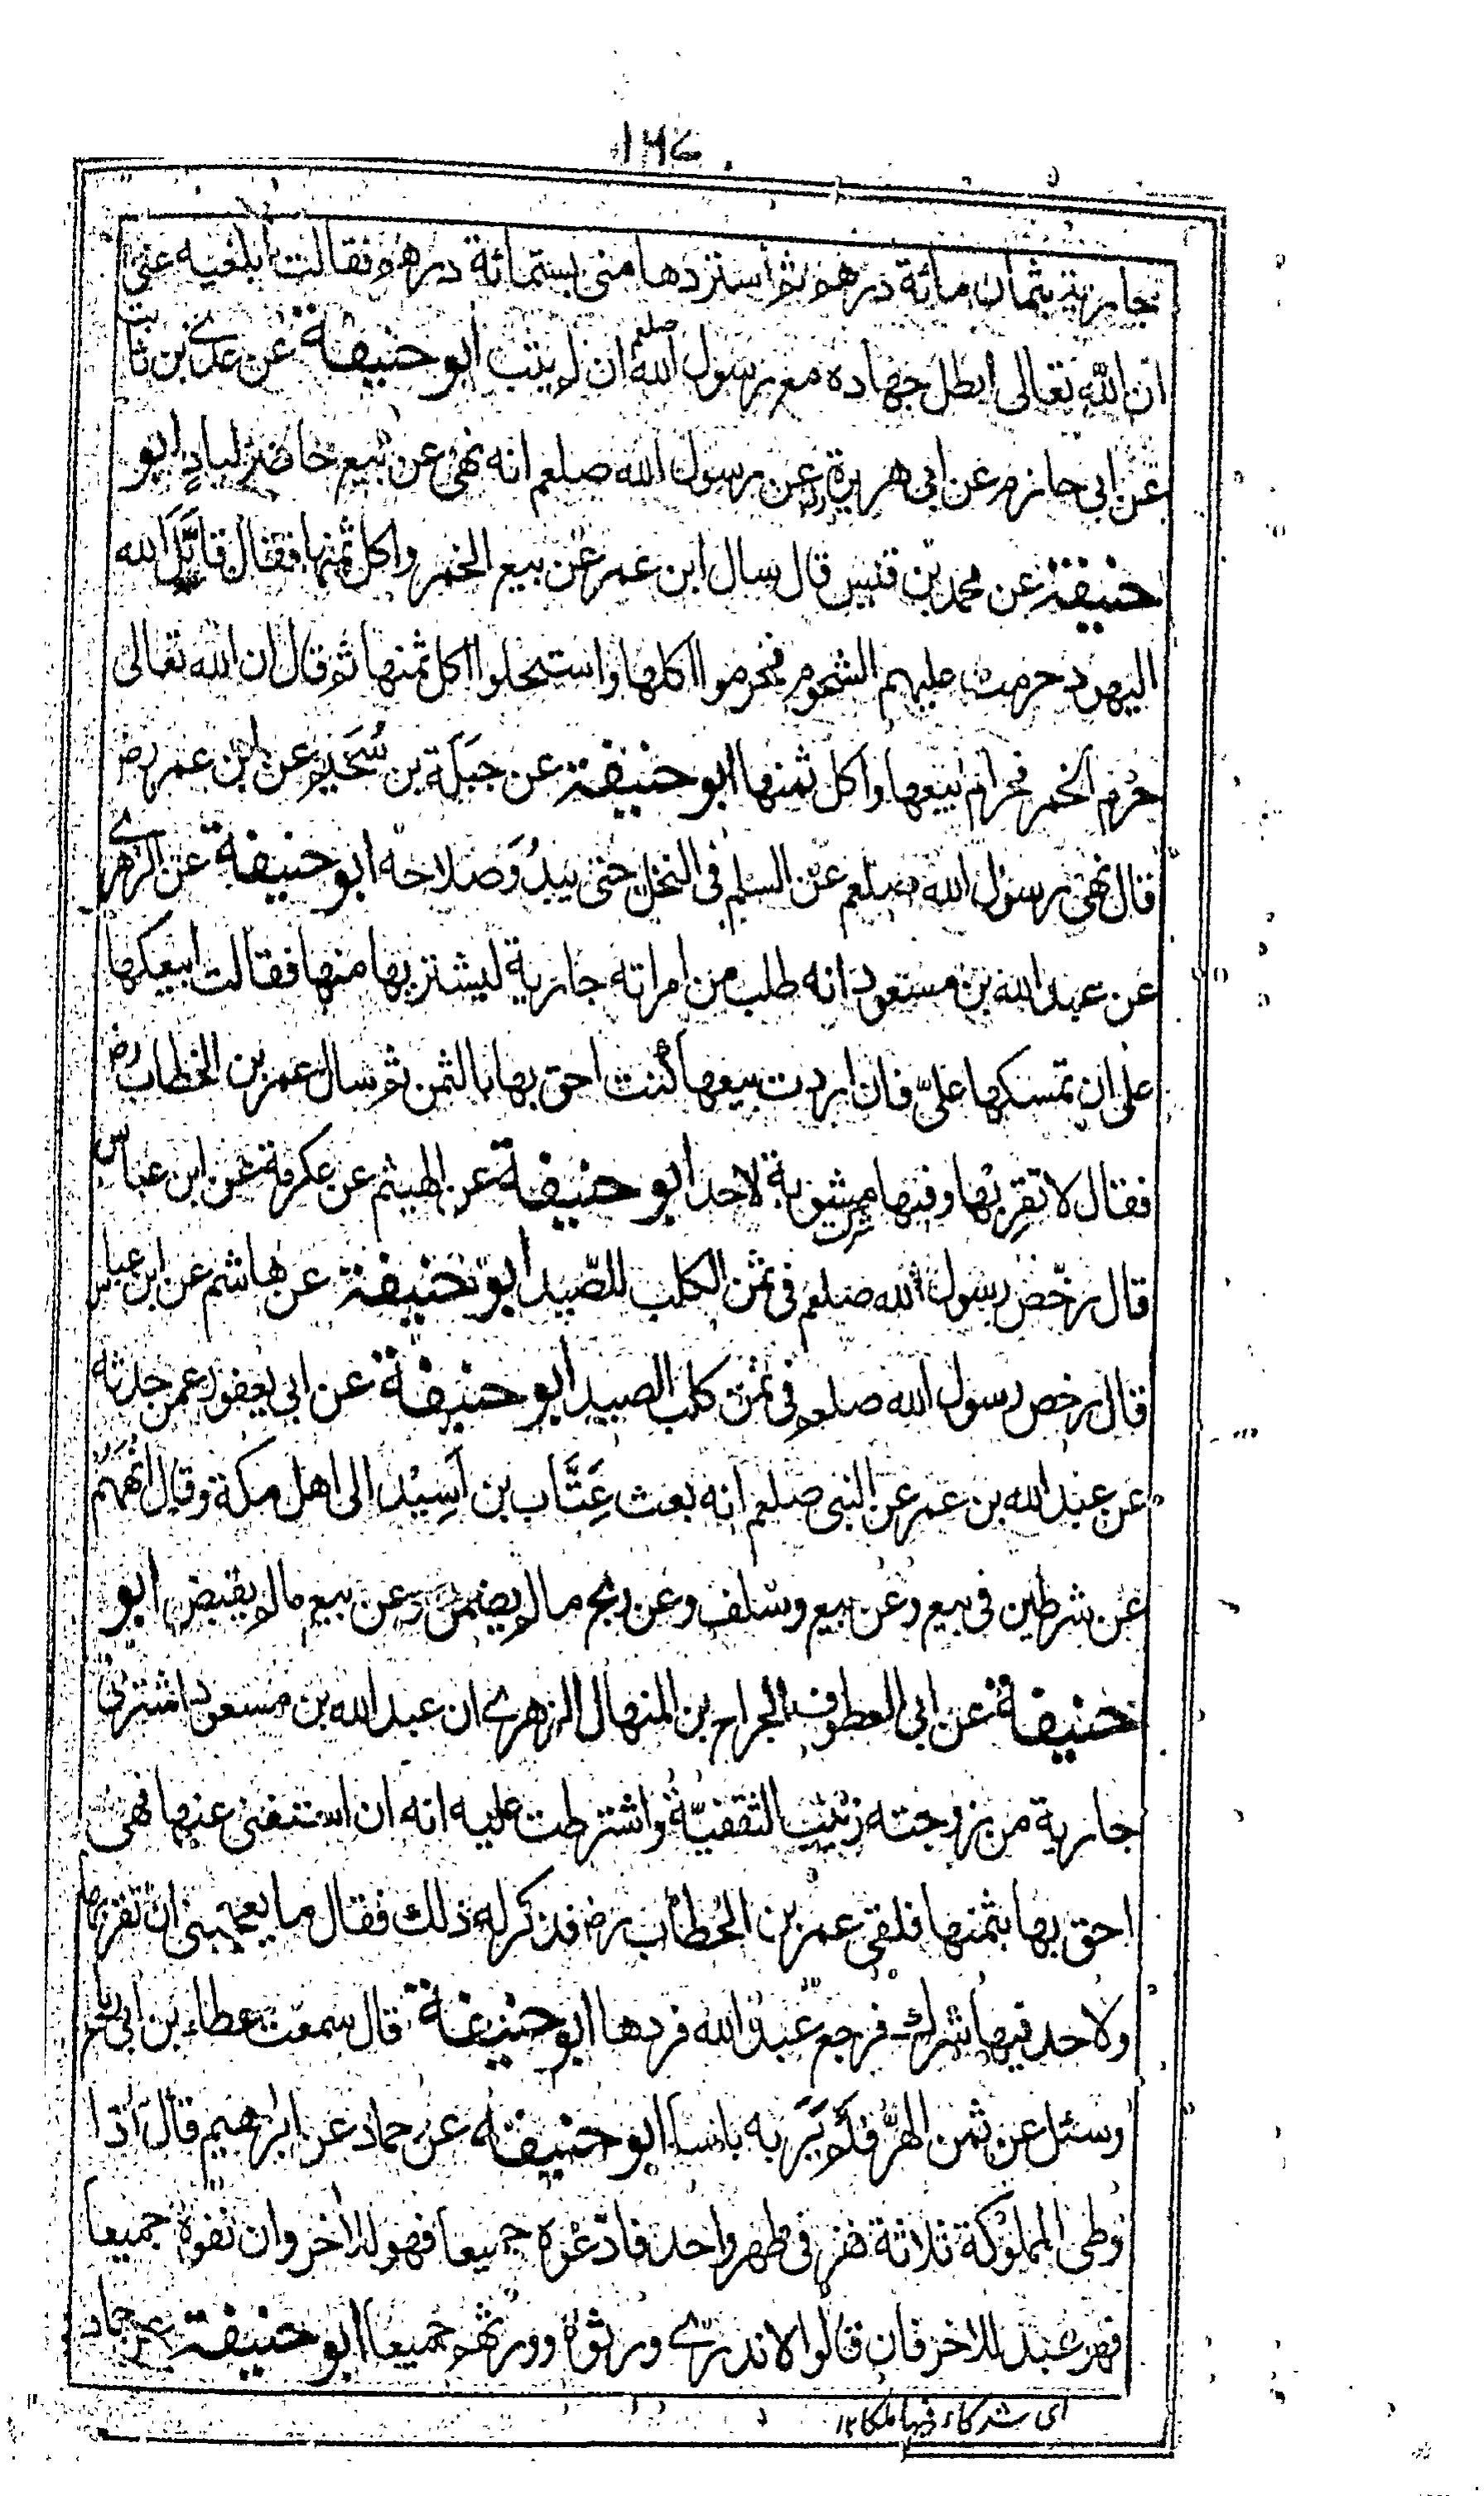 ١٢٤
بجارية بثمان مائة درهم ثم استزدها منى بستمائة درهم فقالت ابلغيه عنى
ان الله تعالى ابطل جهاده مع رسول الله صلعم ان لم يتب ابو حنيفة عن عدي بن ثابت
عن ابى حازم عن ابى هريرة رض عن رسول الله صلعم انه نهى عن بيع حاضر لبادٍ ابو
حنيفة عن محمد بن قيس قال سال ابن عمر عن بيع الخمر واكل ثمنها فقال قاتَلَ الله
اليهود حرمت عليهم الشحوم فحرموا اكلها واستحلوا اكل ثمنها ثم قال ان الله تعالى
حرم الخمر فحرام بيعها واكل ثمنها ابو حنيفة عن جَبَلَة بن سُحَيم عن ابن عمر رض
قال نهى رسول الله صلعم عن السلم فى النخل حتى يبدُوَ صلاحه ابو حنيفة عن الزهرے
عن عبد الله بن مسعود انه طلب من امراته جارية ليشتريها منها فقالت ابيعكها
على ان تمسكها علىّ فان اردت بيعها كنت احق بها بالثمن ثم سال عمر بن الخطاب رض
فقال لا تقربها وفيها مثنوية لاحد ابو حنيفة عن الهيثم عن عكرمة عن ابن عباس
قال رخّص رسول الله صلعم فى ثمن الكلب للصّيد ابو حنيفة عن هاشم عن ابن عباس
قال رخص رسول الله صلعم فى ثمن كلب الصيد ابو حنيفة عن ابى يعفور عمن حدثه
عن عبد الله بن عمر عن النبى صلعم انه بعث عَتَّاب بن اَسِيْد الى اهل مكة وقال انهَهُم
عن شرطين فى بيع وعن بيع وسلف وعن ربح ما لم يضمن وعن بيع ما لم يقبض ابو
حنيفة عن ابى العطوف الجراح بن المنهال الزهرے ان عبد الله بن مسعود اشترى
جارية من زوجته زينب الثقفيّة واشترطت عليه انه ان استغنى عنها فهى
احق بها بثمنها فلقى عمر بن الخطاب رض فذكر له ذلك فقال ما يعجبنى ان تقربها
ولاحد فيها شرك فرجع عبد الله فردها ابو حنيفة قال سمعت عطاء بن ابى رباح
وسئل عن ثمن الهرّ فلم يَرَ به باسا ابو حنيفه عن حماد عن ابرهيم قال اذا
وطى المملوكة ثلاثة نفر فى طهر واحد فادعوه جميعا فهو للاخر وان نفوه جميعا
فهو عبد للاخر فان قالوا لا ندرے ورثوه وورثهم جميعا ابو حنيفة عن حماد
اى شركاء فيها ملكا ١٢